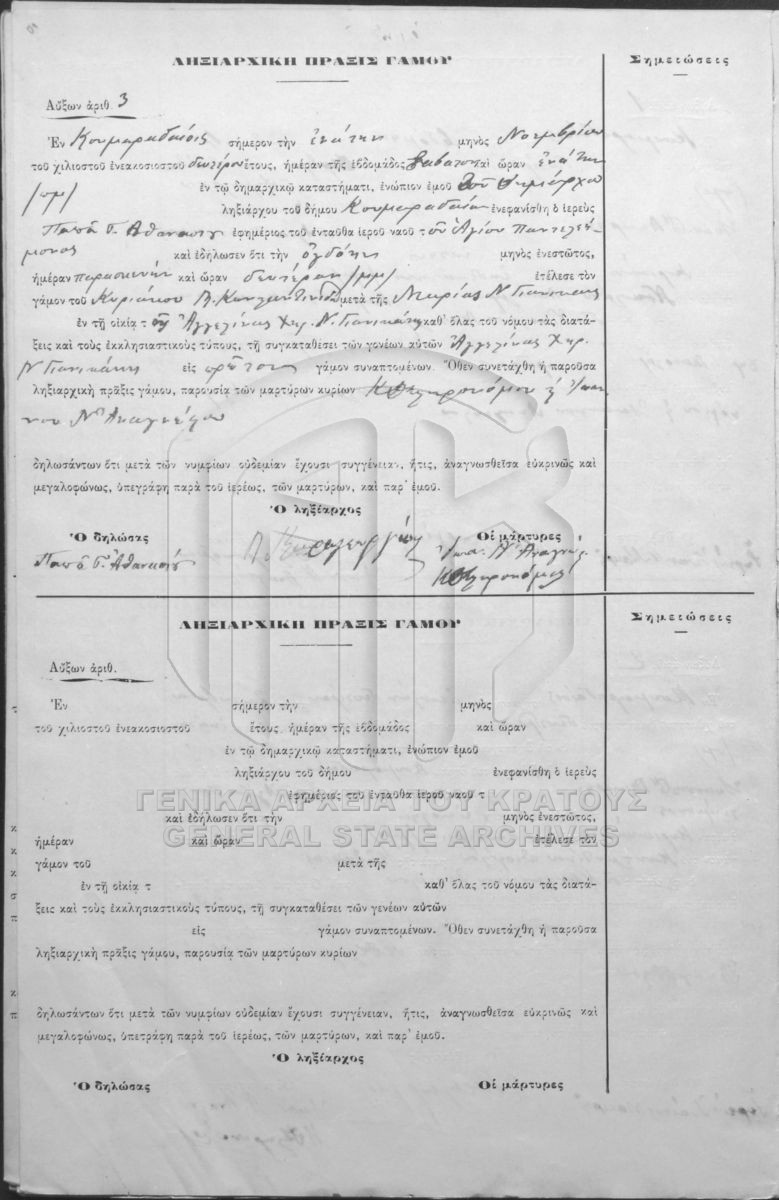 ΛΗΞΙΑΡΧΙΚΗ ΠΡΑΞΙΣ ΓΑΜΟΥ
Σημειώσεις
Αὔξων ἀριθ. 3
Ἐν Κουμαραδαίοις σήμερον τὴν ἐνάτην μηνὸς Νοεμβρίου
τοῦ χιλιοστοῦ ἐνεακοσιοστοῦ δευτέρου ἔτους, ἡμέραν τῆς ἑβδομάδος Σάβατον καὶ ὥραν ἐνάτην
/πμ/ ἐν τῷ δημαρχικῷ καταστήματι, ἐνώπιον ἐμοῦ τοῦ Δημάρχου
ληξιάρχου τοῦ δήμου Κουμαραδαίων ἐνεφανίσθη ὁ ἱερεὺς
Παπᾶ Γ. Ἀθανασίου ἐφημέριος τοῦ ἐνταῦθα ἱεροῦ ναοῦ τοῦ Ἁγίου Παντελεή-
μονος καὶ ἐδήλωσεν ὅτι τὴν ὀγδόην μηνὸς ἐνεστῶτος,
ἡμέραν παρασκευὴν καὶ ὥραν δευτέραν /μμ/ ἐτέλεσε τὸν
γάμον τοῦ Κυριάκου Κωνσταντινίδου μετὰ τῆς Μαρίας Ν. Γιαννικάκη
ἐν τῇ οἰκίᾳ τῆς Ἀγγελίνας Χηρ. Ν. καθ' ὅλας τοῦ νόμου τὰς διατά-
ξεις καὶ τοὺς ἐκκλησιαστικοὺς τύπους, τῇ συγκαταθέσει τῶν γονέων αὐτῶν Ἀγγελίνας Χηρ.
Ν. εἰς πρῶτον γάμον συναπτομένων. Ὅθεν συνετάχθη ἡ παροῦσα
ληξιαρχικὴ πρᾶξις γάμου, παρουσίᾳ τῶν μαρτύρων κυρίων Κ. Οἰκονόμου ἢ Ἰωάν-
νου Ν. Ἀναγνώστου
δηλωσάντων ὅτι μετὰ τῶν νυμφίων οὐδεμίαν ἔχουσι συγγένειαν, ἥτις, ἀναγνωσθεῖσα εὐκρινῶς καὶ
μεγαλοφώνως, ὑπεγράφη παρὰ τοῦ ἱερέως, τῶν μαρτύρων, καὶ παρ' ἐμοῦ.
Ὁ ληξίαρχος
Ὁ δηλώσας
Οἱ μάρτυρες
Παπᾶ Γ. Ἀθανασίου
Ἰωα. Ν.
ΛΗΞΙΑΡΧΙΚΗ ΠΡΑΞΙΣ ΓΑΜΟΥ
Σημειώσεις
Αὔξων ἀριθ.
Ἐν σήμερον τὴν μηνὸς
τοῦ χιλιοστοῦ ἐνεακοσιοστοῦ ἔτους ἡμέραν τῆς ἑβδομάδος καὶ ὥραν
ἐν τῷ δημαρχικῷ καταστήματι, ἐνώπιον ἐμοῦ
ληξιάρχου τοῦ δήμου ἐνεφανίσθη ὁ ἱερεὺς
ἐφημέριος τοῦ ἐνταῦθα ἱεροῦ ναοῦ τ
ΓΕΝΙΚΑ ΑΡΧΕΙΑ ΤΟΥ ΚΡΑΤΟΥΣ
καὶ ἐδήλωσεν ὅτι τὴν μηνὸς ἐνεστῶτος,
GENERAL STATE ARCHIVES
ἡμέραν καὶ ὥραν ἐτέλεσε τὸν
γάμον τοῦ μετὰ τῆς
ἐν τῇ οἰκίᾳ τ καθ' ὅλας τοῦ νόμου τὰς διατά-
ξεις καὶ τοὺς ἐκκλησιαστικοὺς τύπους, τῇ συγκαταθέσει τῶν γονέων αὐτῶν
εἰς γάμον συναπτομένων. Ὅθεν συνετάχθη ἡ παροῦσα
ληξιαρχικὴ πρᾶξις γάμου, παρουσίᾳ τῶν μαρτύρων κυρίων
δηλωσάντων ὅτι μετὰ τῶν νυμφίων οὐδεμίαν ἔχουσι συγγένειαν, ἥτις, ἀναγνωσθεῖσα εὐκρινῶς καὶ
μεγαλοφώνως, ὑπετράφη παρὰ τοῦ ἱερέως, τῶν μαρτύρων, καὶ παρ' ἐμοῦ.
Ὁ ληξίαρχος
Ὁ δηλώσας
Οἱ μάρτυρες